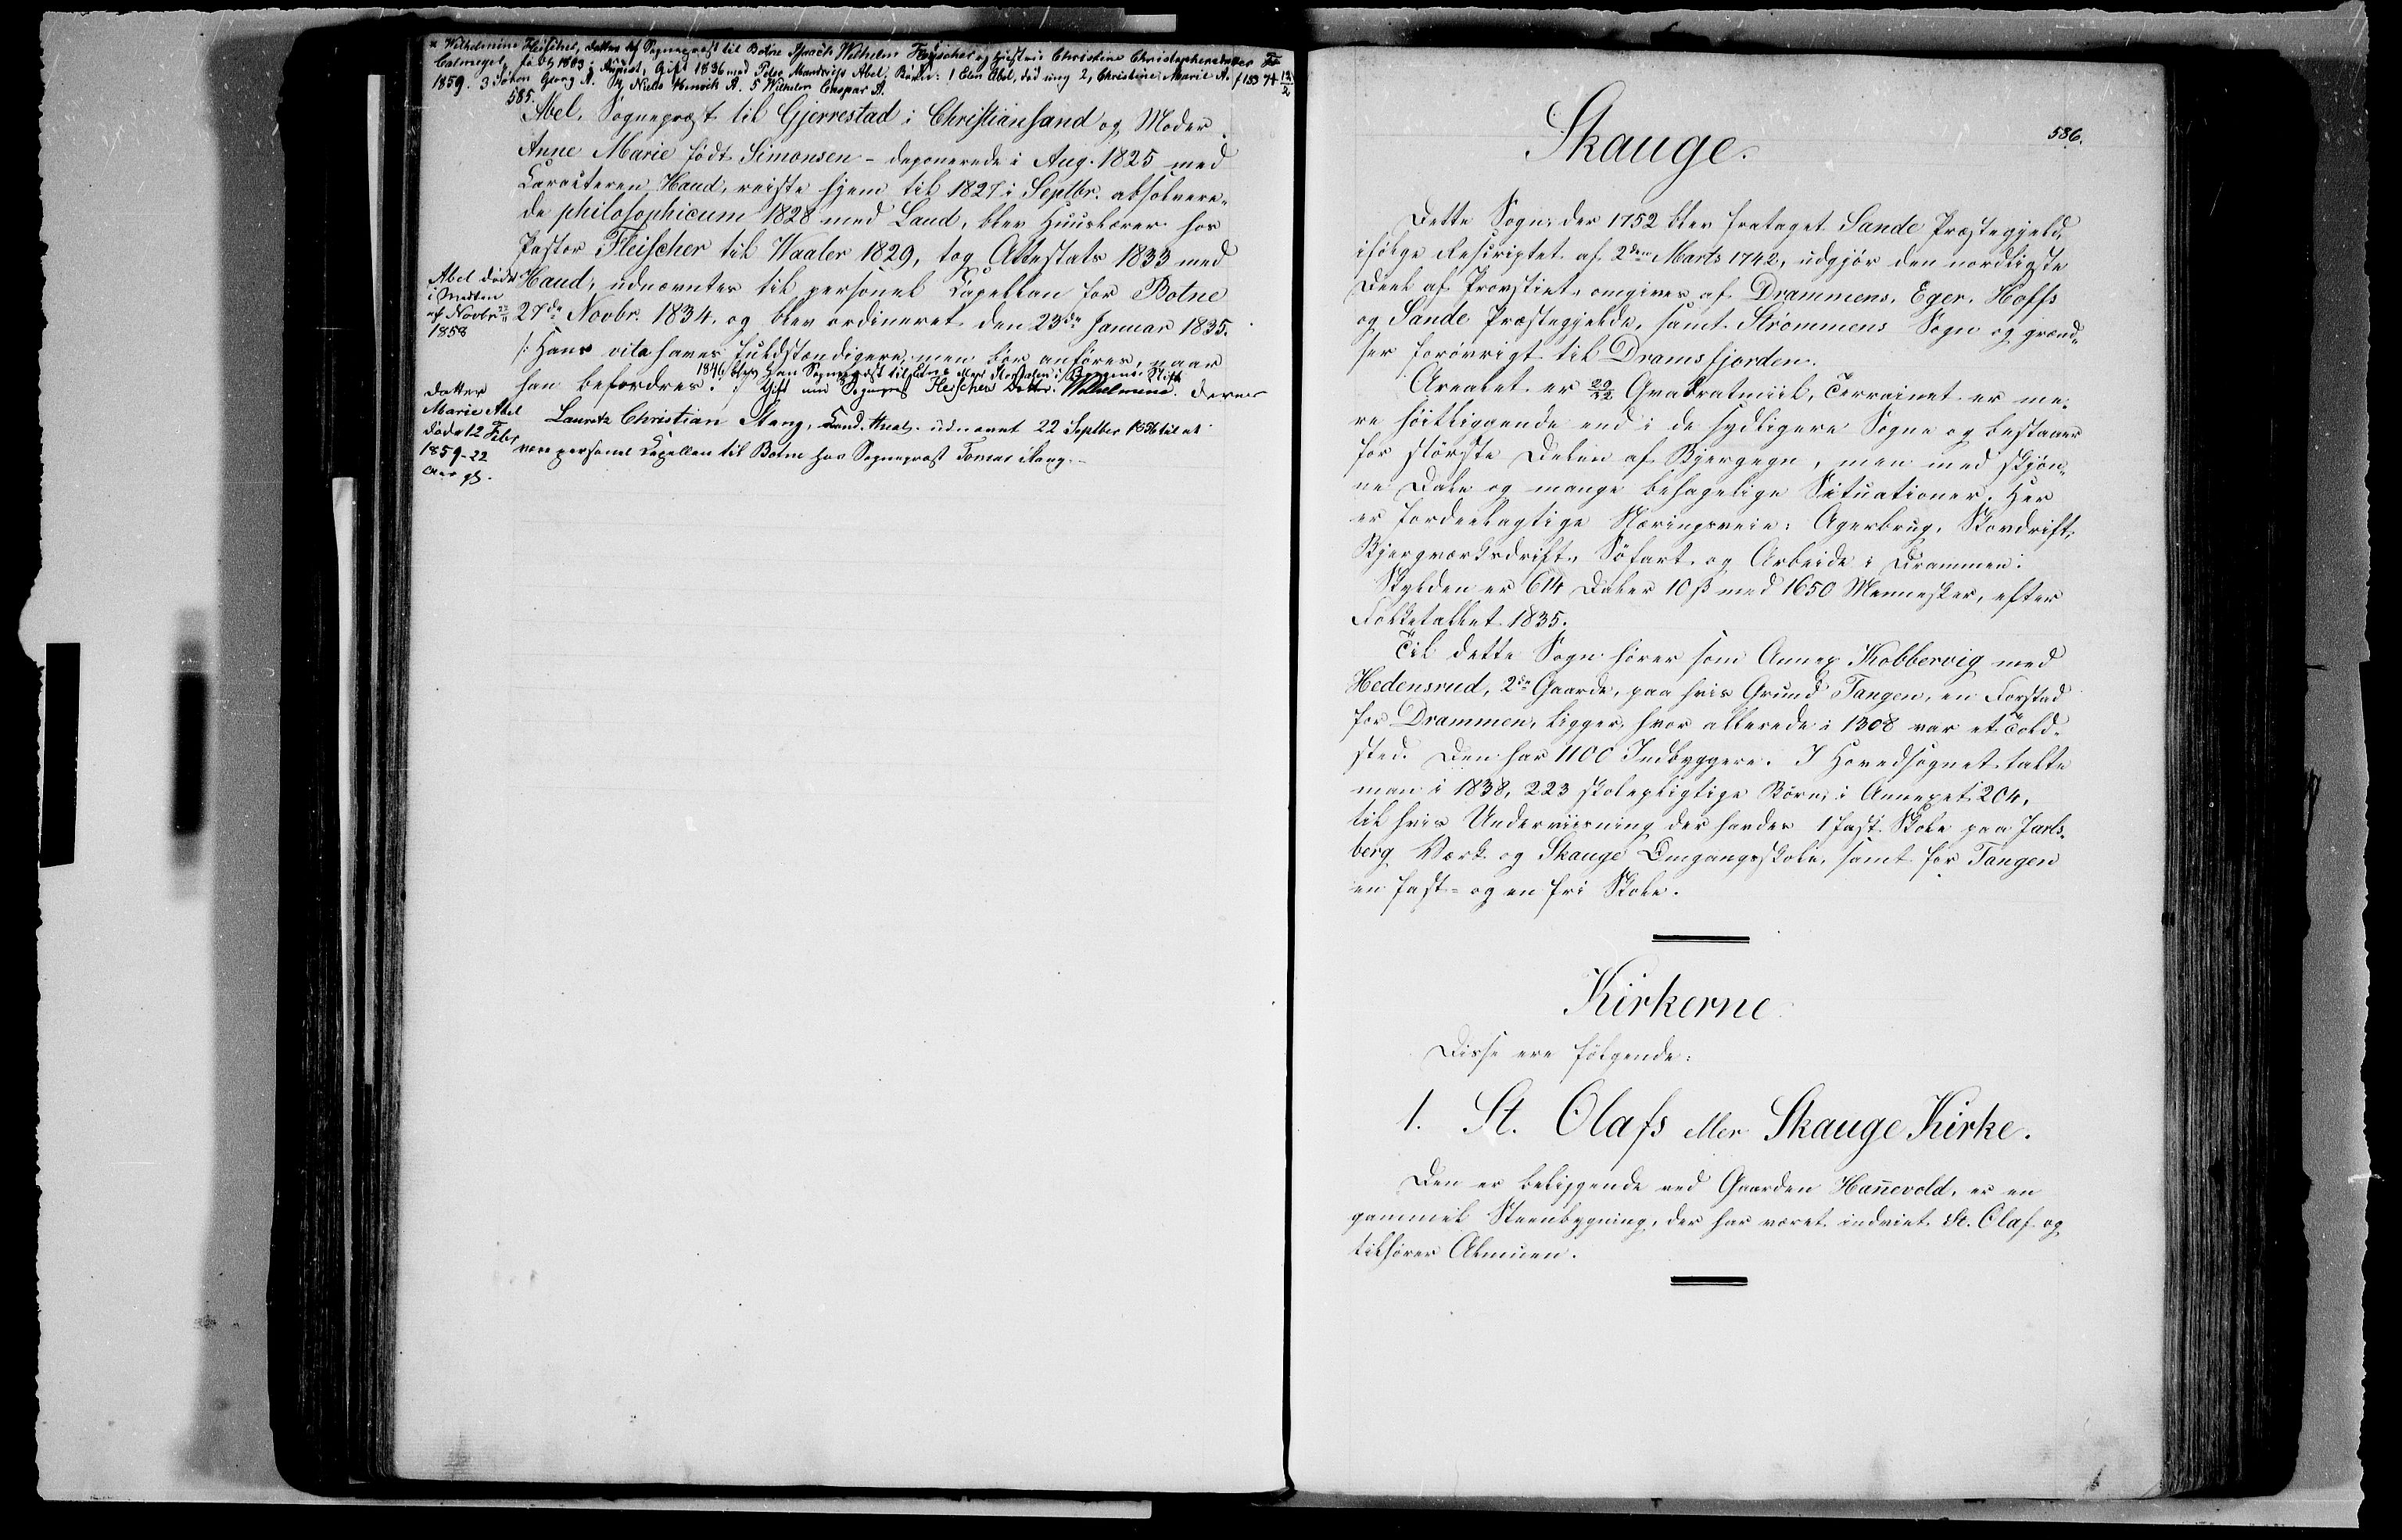 * Wilhelmine Fleischer, Datter af Sognepræst til Botne Wilhelm Fleischer og Hustrue Christine Christophersdatter
Colmeyet, född 1803 August, Gift 1836 med Peder Abel. Börn: 1 Elen Abel, död ung 2, Christine Marie A. f 183
1859. 3 Johan Georg A. 4 Niels Henrik A. 5 Wilhelm Caspar A.
585.
Abel, Sognepræst til Gjerrestad i Christiansand og Moder
Anne Marie född Simonsen - deponerede i Aug. 1825 med
Caracteren Haud, reiste hjem til 1827 i Septbr. absolvere-
de philosophicum 1828 med Laud, blev Huuslærer hos
Pastor Fleischer til Vaaler 1829, tog Attestats 1833 med
Haud, udnævntes til personel Capellan for Botne
27de Novbr. 1834, og blev ordineret den 23de Januar 1835.
/: Hans vita haves fuldstændigere, men bör anföres, naar
1846 blev Han Sognepræst til Etne eller Stordalen i Bergens Stift
han befordres. :/ Gift med Sognepræst Fleischers Datter Wilhelmine. Deres
Abel döde
i Medten
af Novbr
1858
Datter
Marie Abel
döde 12 Febr
1859 - 22
Aar gl.
Lauritz Christian Stang, Cand. theol. udnævnt 22 Septbr 1856 til at
være personel Capellan til Botne hos Sognepræst Tomas Stang. -
586.
Skauge.
Dette Sogn, der 1752 blev frataget Sande Præstegjeld,
ifölge Rescriptet af 2den Marts 1742, udgjör den nordligste
Deel af Provstiet, omgives af Drammens, Eger, Hoffs
og Sande Præstegjelde, samt Strömmens Sogn og grænd-
ser forövrigt til Dramsfjorden.
Arealet er 29/22 Qvadratmiil, Terrainet er me-
re höitliggende end i de sydligere Sogne og bestaaer
for störste Delen af Bjergegn, men med skjön-
ne Dale og mange behagelige Situationer. Her
er fordeelagtige Næringsveie: Agerbrug, Skovdrift,
Bjergværksdrift, Söfart og Arbeide i Drammen.
Skylden er 614 Daler 10 ß med 1650 Mennesker, efter
Folketallet 1835.
Til dette Sogn hörer som Annex Kobbervig med
Hedensrud, 2de Gaarde, paa hvis Grund Tangen, en Forstad
for Drammen, ligger, hvor allerede i 1308 var et Told-
sted. Den har 1100 Indbyggere. I Hovedsognet talte
man i 1838, 223 skolepligtige Börn, i Annexet 204,
til hvis Underviisning der havdes 1 fast Skole paa Jarls-
berg Værk og Skauge Omgangsskole, samt for Tangen
en fast- og en fri Skole.
Kirkerne
Disse ere fölgende:
1. St. Olafs eller Skauge Kirke.
Den er beliggende ved Gaarden Hañevold, er en
gammel Steenbygning, der har været indviet St. Olaf og
tilhörer Almuen.